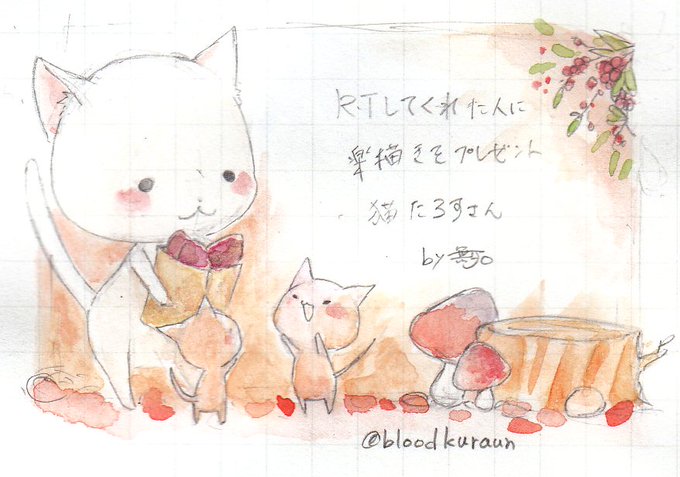 RTしてくれた人に
楽描きをプレゼント
猫たろすさん
by
@bloodkuraun